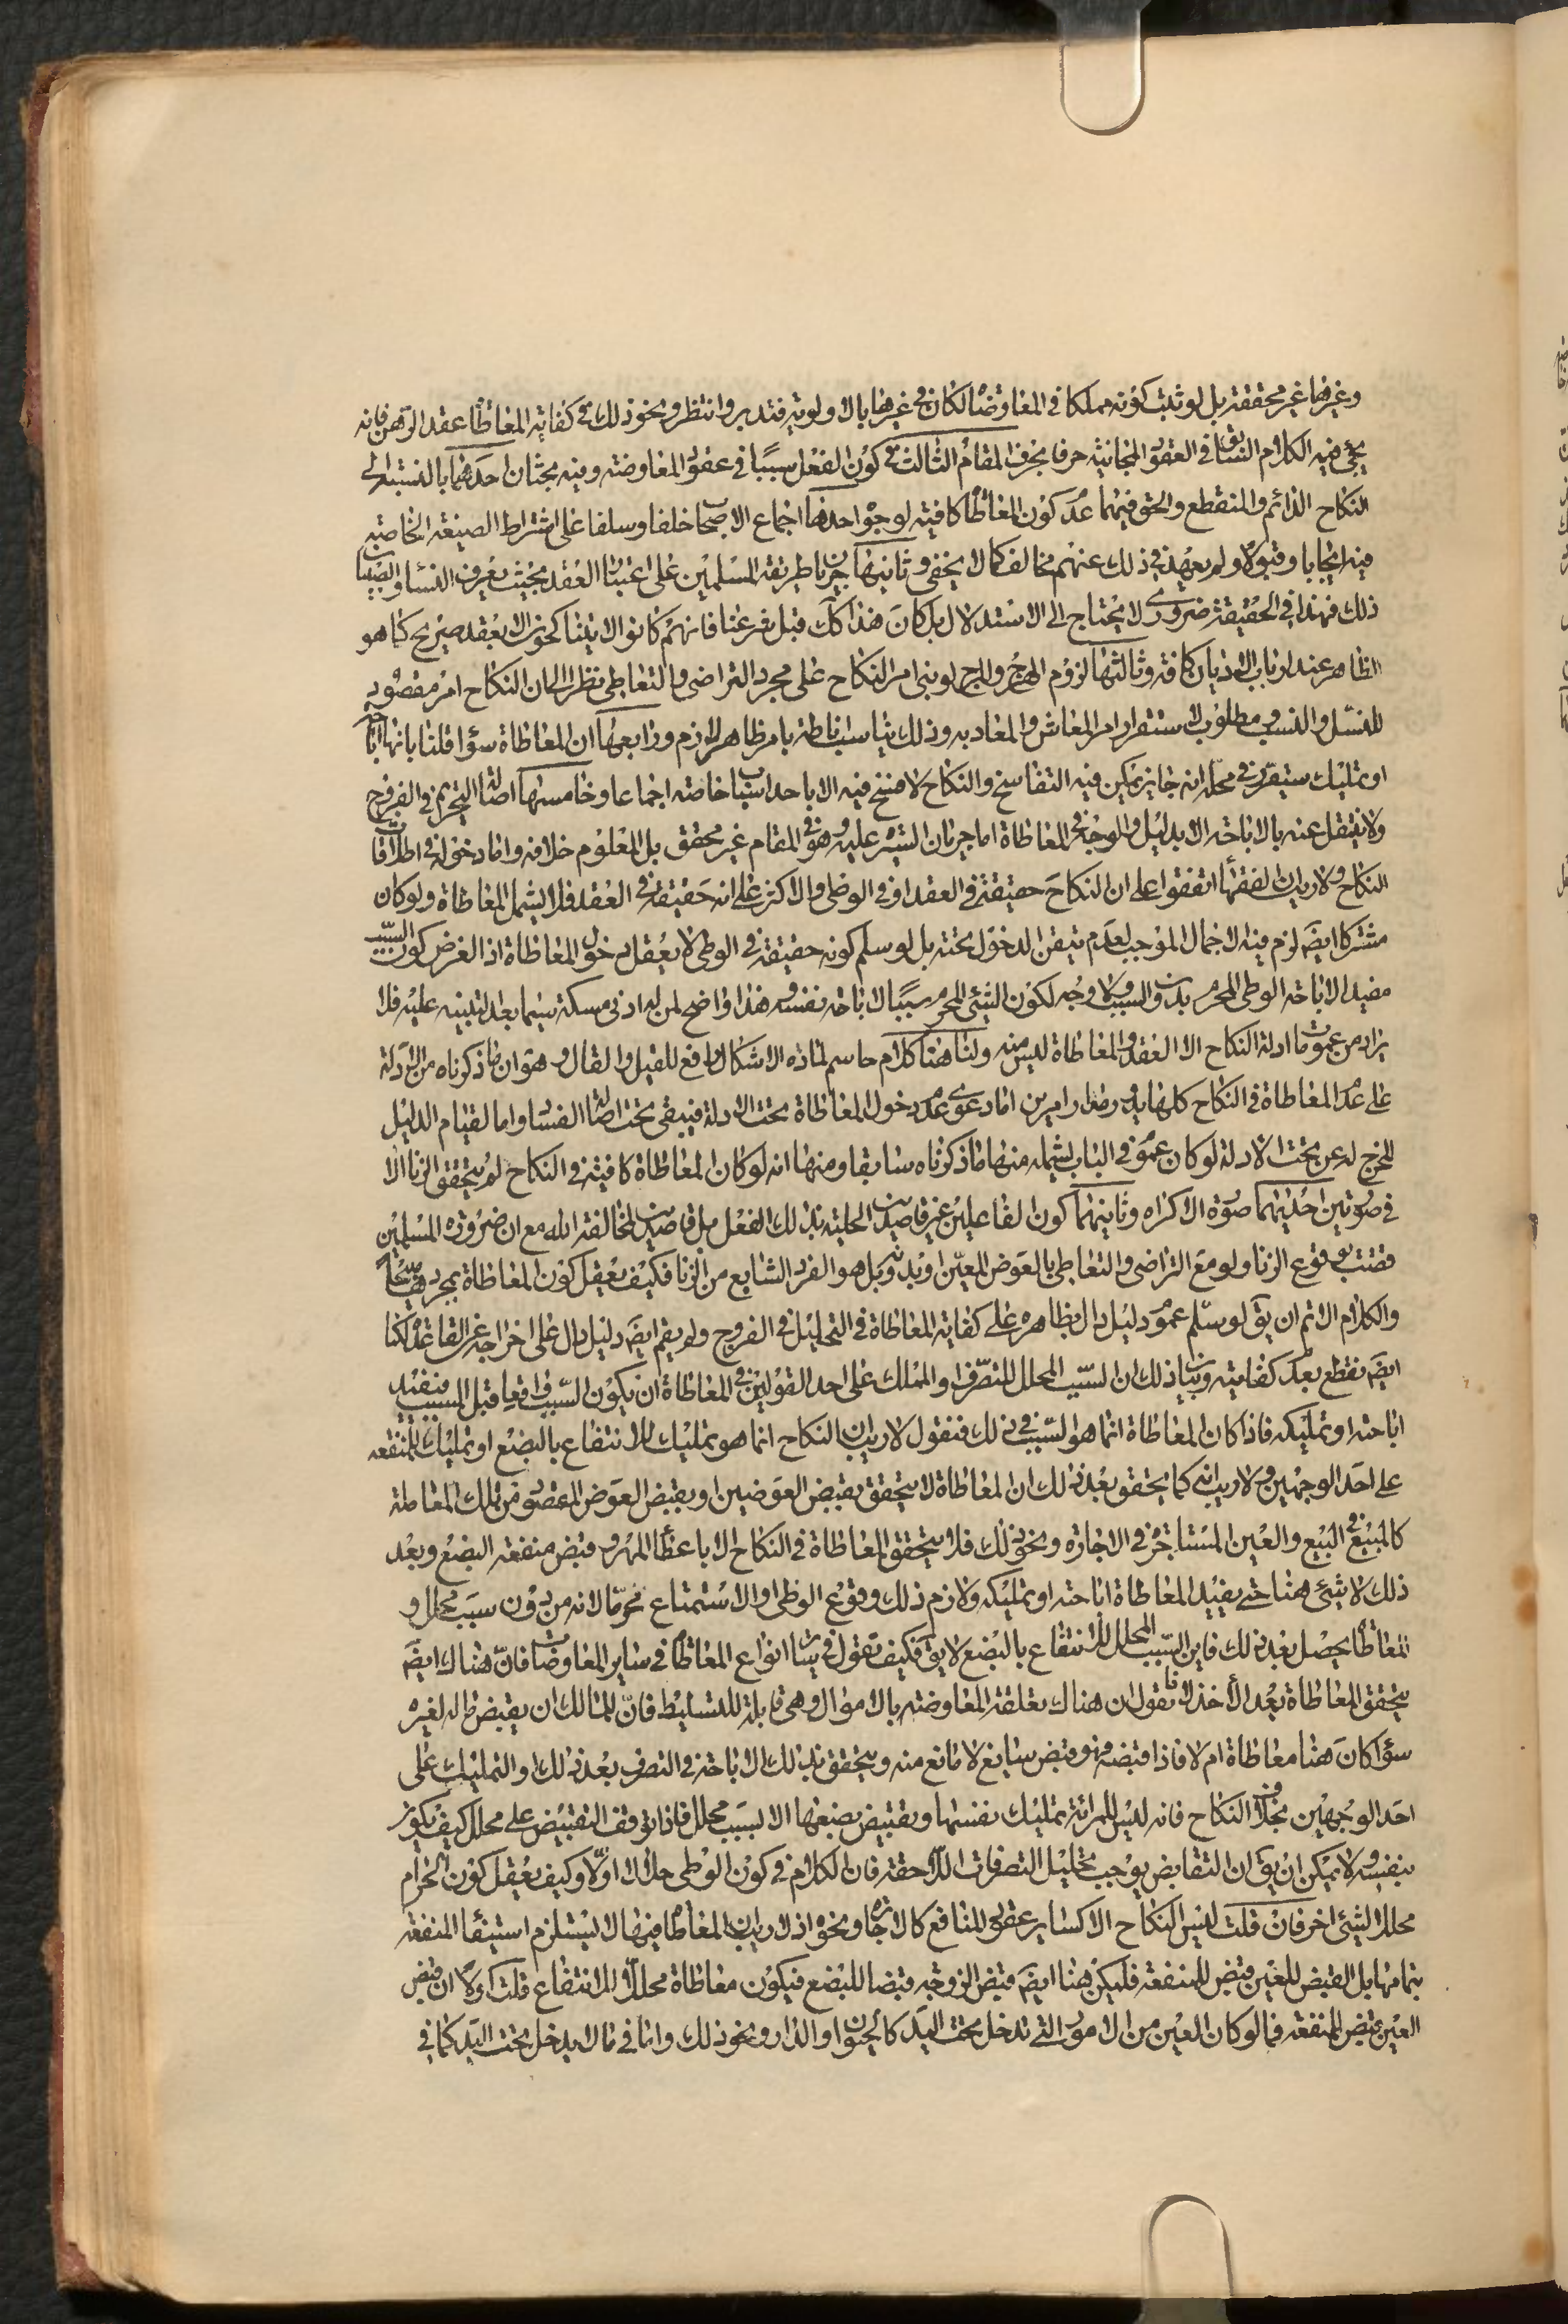 وغيرها غير محققة بل لو ثبت كونه مملكا في المعاوضا لكان في غيرها بالاولوية فتدبر وانتظر ونحو ذلك في كفاية المعاطا عقد الرهن فانه
يجئ فيه الكلام السابق في العقود المجانية حرفا بحرف المقام الثالث في كون الفعل سببا في عقود المعاوضة وفيه بحثان احدهما بالنسبة الى
النكاح الدائم والمنقطع والحق فيهما عدم كون المعاطا كافية لوجوه احدها اجماع الاصحاب خلفا وسلفا على اشتراط الصيغة الخاصة
فيه ايجابا وقبولا ولم يعهد في ذلك عنهم مخالف كما لا يخفى وثانيها جريان طريقة المسلمين على اعتبار العقد بحيث يعرف النساء والصبيان
ذلك فهذا في الحقيقة ضروري لا يحتاج الى الاستدلال بل كان هذا كك قبل شرعنا فانهم كانوا لا يتناكحون الا بعقد صريح كما هو
الظاهر عند ارباب الاديان كافة وثالثها لزوم الهرج والمرج لو بنى امر النكاح على مجرد التراضي والتعاطي نظرا الى ان النكاح امر مقصود به
للنسل والنسب ومطلوب لاستقرار امر المعاش والمعاد به وذلك يناسب اناطته بامر ظاهر لازم ورابعها ان المعاطاة سواء قلنا بانها اباحة
او تمليك سيقرر في محله انه جايز يمكن فيه التفاسخ والنكاح لا فسخ فيه الا باحد اسباب خاصة اجماعا وخامسها اصالة التحريم في الفروج
ولا ينتقل عنه بالاباحة الا بدليل والوجه في المعاطاة اما جريان السيرة عليه وهو في المقام غير محقق بل المعلوم خلافه واما دخوله في اطلاقات
النكاح ولا ريب ان الفقهاء اتفقوا على ان النكاح حقيقة في العقد او في الوطى والاكثر على انه حقيقة في العقد فلا يشمل المعاطاة ولو كان
مشتركا ايضَ لزم فيه الاجمال الموجب لعدم تيقن الدخول تحته بل لو سلم كونه حقيقة في الوطى لا يعقل دخول المعاطاة اذ الغرض كون السبب
مفيدا لاباحة الوطى المحرم بدون السبب ولا وجه لكون الشئ المحرم سببا لاباحة نفسه وهذا واضح لمن له ادنى مسكة سيما بعد التنبيه عليه فلا
يراد من عمومات ادلة النكاح الا العقد والمعاطاة ليس منه ولنا هنا كلام حاسم لمادة الاشكال دافع للقيل والقال وهو ان ما ذكرناه من الادلة
على عدم المعاطاة في النكاح كلها يدور مدار امرين اما دعوى عدم دخول المعاطاة تحت الادلة فيبقى تحت اصالة الفساد واما لقيام الدليل
المخرج له عن تحت الادلة لو كان عموم في الباب يشمله منها ما ذكرناه سابقا ومنها انه لو كان المعاطاة كافية في النكاح لم يتحقق الزنا الا
في صورتين احديهما صورة الاكراه وثانيهما كون الفاعلين غير قاصدين الحلية بذلك الفعل بل قاصدين لمخالفة الله مع ان ضرورة المسلمين
قضت بوقوع الزنا ولو مع التراضي والتعاطي بالعوض المعين او بدونه بل هو الفرد الشايع من الزنا فكيف يعقل كون المعاطاة بمجردها مبيحا
والكلام الاتم ان يق لو سلم عموم دليل دال بظاهره على كفاية المعاطاة في التحليل في الفروج ولم يقم ايضَ دليل دال على اخراجه عن القاعدة لكنا
ايضَ نقطع بعدم كفايته وبيان ذلك ان السبب المحلل للتصرف او المملك على احد القولين في المعاطاة ان يكون السبب واقعا قبل المسبب فيفيد
اباحته او تمليكه فاذا كان المعاطاة انما هو السبب في ذلك فنقول لا ريب ان النكاح انما هو تمليك للانتفاع بالبضع او تمليك للمنفعة
على احد الوجهين ولا ريب انه كما يتحقق بعد ذلك ان المعاطاة لا يتحقق بقبض العوضين او بقبض العوض المقصود من تلك المعاملة
كالمبيع في البيع والعين المستاجرة في الاجارة ونحو ذلك فلا يتحقق المعاطاة في النكاح الا باعطاء المهر وقبض منفعة البضع وبعد
ذلك لا شئ هنا حتى يفيد المعاطاة اباحته او تمليكه ولازم ذلك وقوع الوطى او الاستمتاع محرما لانه من دون سبب محلل و
المعاطا يحصل بعد ذلك فاين السبب المحلل للانتفاع بالبضع لا يق فكيف تقول في ساير انواع المعاطا في ساير المعاوضات فان هناك ايضَ
يتحقق المعاطاة بعد الاخذ لانا نقول ان هناك تعلقت المعاوضة بالاموال وهي قابلة للتسليط فان للمالك ان يقبض ماله لغيره
سواء كان هنا معاطاة ام لا فاذا قبضه فهو قبض سايغ لا مانع منه ويتحقق بذلك الاباحة في التصرف بعد ذلك او التمليك على
احد الوجهين بخلاف النكاح فانه ليس للمرئة تمليك نفسها وتقبيض بضعها الا بسبب محلل فاذا توقف التقبيض على محلل كيف يكون
بنفسه ولا يمكن ان يق ان التقابض يوجب تحليل التصرفات اللاحقة فان الكلام في كون الوطى حلالا اولا وكيف يعقل كون الحرام
محللا لشئ اخر فان قلت ليس النكاح الا كساير عقود المنافع كالاجارة ونحوه اذ لا ريب ان المعاطا فيها لا يستلزم استيفاء المنفعة
بتمامها بل القبض للعين قبض للمنفعة فليكن هنا ايضَ قبض الزوجة قبضا للبضع فيكون معاطاة محللة للانتفاع قلت اولا ان قبض
العين قبض للمنفعة فيما لو كان العين من الامور التي تدخل تحت اليد كالحيوان او الدار ونحو ذلك واما في ما لا يدخل تحت اليد كما في